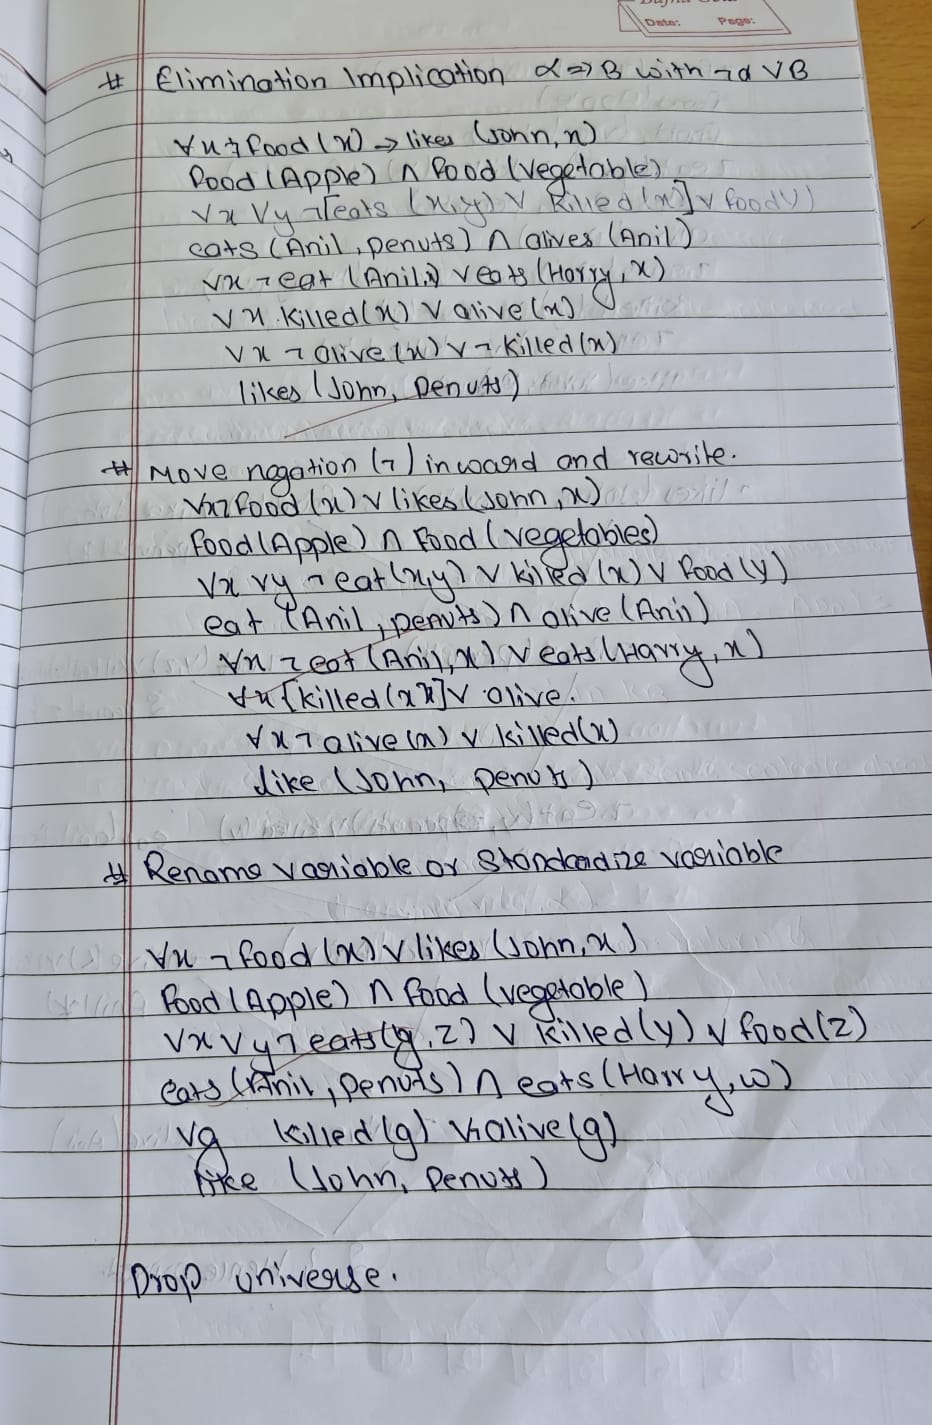 Date: Page:
# Elimination Implication α⇒B with ¬α ∨ B
∀x ¬ food (x) → likes (John, x)
food (Apple) ∧ food (vegetable)
∀x ∀y ¬[eats (x,y) ∨ killed (x)] ∨ food(y)
eats (Anil, penuts) ∧ alives (Anil)
∀x ¬ eat (Anil,x) ∨ eats (Harry, x)
∀x killed(x) ∨ alive(x)
∀x ¬ alive (x) ∨ ¬ killed(x)
likes (John, penuts)
# Move negation (¬) inward and rewrite.
∀x¬ food (x) ∨ likes (John, x)
food (Apple) ∧ food (vegetables)
∀x ∀y ¬ eat (x,y) ∨ killed (x) ∨ food (y)
eat (Anil, penuts) ∧ alive (Anil)
∀x ¬ eat (Anil, x) ∨ eats (Harry, x)
∀x [killed (x)] ∨ alive.
∀x ¬ alive (x) ∨ killed(x)
like (John, penuts)
# Rename variable or Standardize variable
∀x ¬ food (x) ∨ likes (John, x)
food (Apple) ∧ food (vegetable)
∀x ∀y ¬ eats (y, z) ∨ killed (y) ∨ food (z)
eats (Anil, penuts) ∧ eats (Harry, w)
∀g killed (g) ∨ alive (g)
like (John, penuts)
Drop universe.